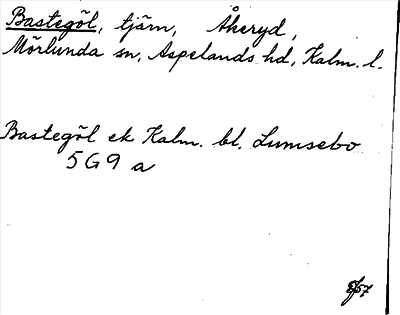 Bastegöl, tjärn, Åkeryd,
Mörlunda sn, Aspelands hd, Kalm. l.
Bastegöl ek Kalm. bl. Lumsebo
5G9 a